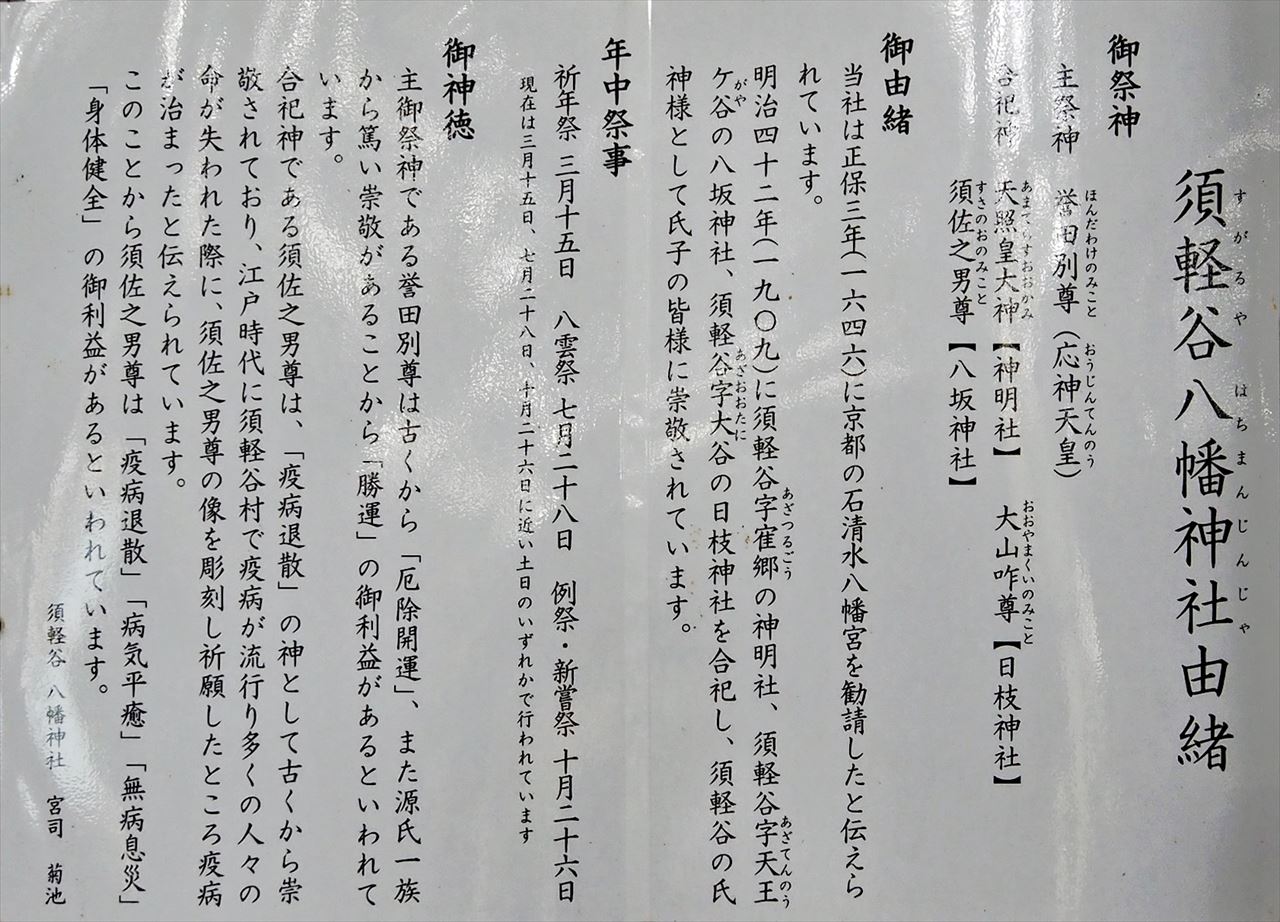 須軽谷八幡神社由緒
すがるや はちまんじんじゃ
御祭神
主祭神 誉田別尊(応神天皇)
ほんだわけのみこと おうじんてんのう
合祀神 天照皇大神【神明社】 大山咋尊【日枝神社】
あまてらすおおかみ おおやまくいのみこと
須佐之男尊【八坂神社】
すさのおのみこと
御由緒
当社は正保三年(一六四六)に京都の石清水八幡宮を勧請したと伝えら
れています。
明治四十二年(一九〇九)に須軽谷字寉郷の神明社、須軽谷字天王
あざつるごう あざてんのう
ケ谷の八坂神社、須軽谷字大谷の日枝神社を合祀し、須軽谷の氏
がや あざおおたに
神様として氏子の皆様に崇敬されています。
年中祭事
祈年祭 三月十五日 八雲祭 七月二十八日 例祭・新嘗祭 十月二十六日
現在は三月十五日、七月二十八日、十月二十六日に近い土日のいずれかで行われています
御神徳
主御祭神である誉田別尊は古くから「厄除開運」、また源氏一族
から篤い崇敬があることから「勝運」の御利益があるといわれて
います。
合祀神である須佐之男尊は、「疫病退散」の神として古くから崇
敬されており、江戸時代に須軽谷村で疫病が流行り多くの人々の
命が失われた際に、須佐之男尊の像を彫刻し祈願したところ疫病
が治まったと伝えられています。
このことから須佐之男尊は「疫病退散」「病気平癒」「無病息災」
「身体健全」の御利益があるといわれています。
須軽谷 八幡神社 宮司 菊池